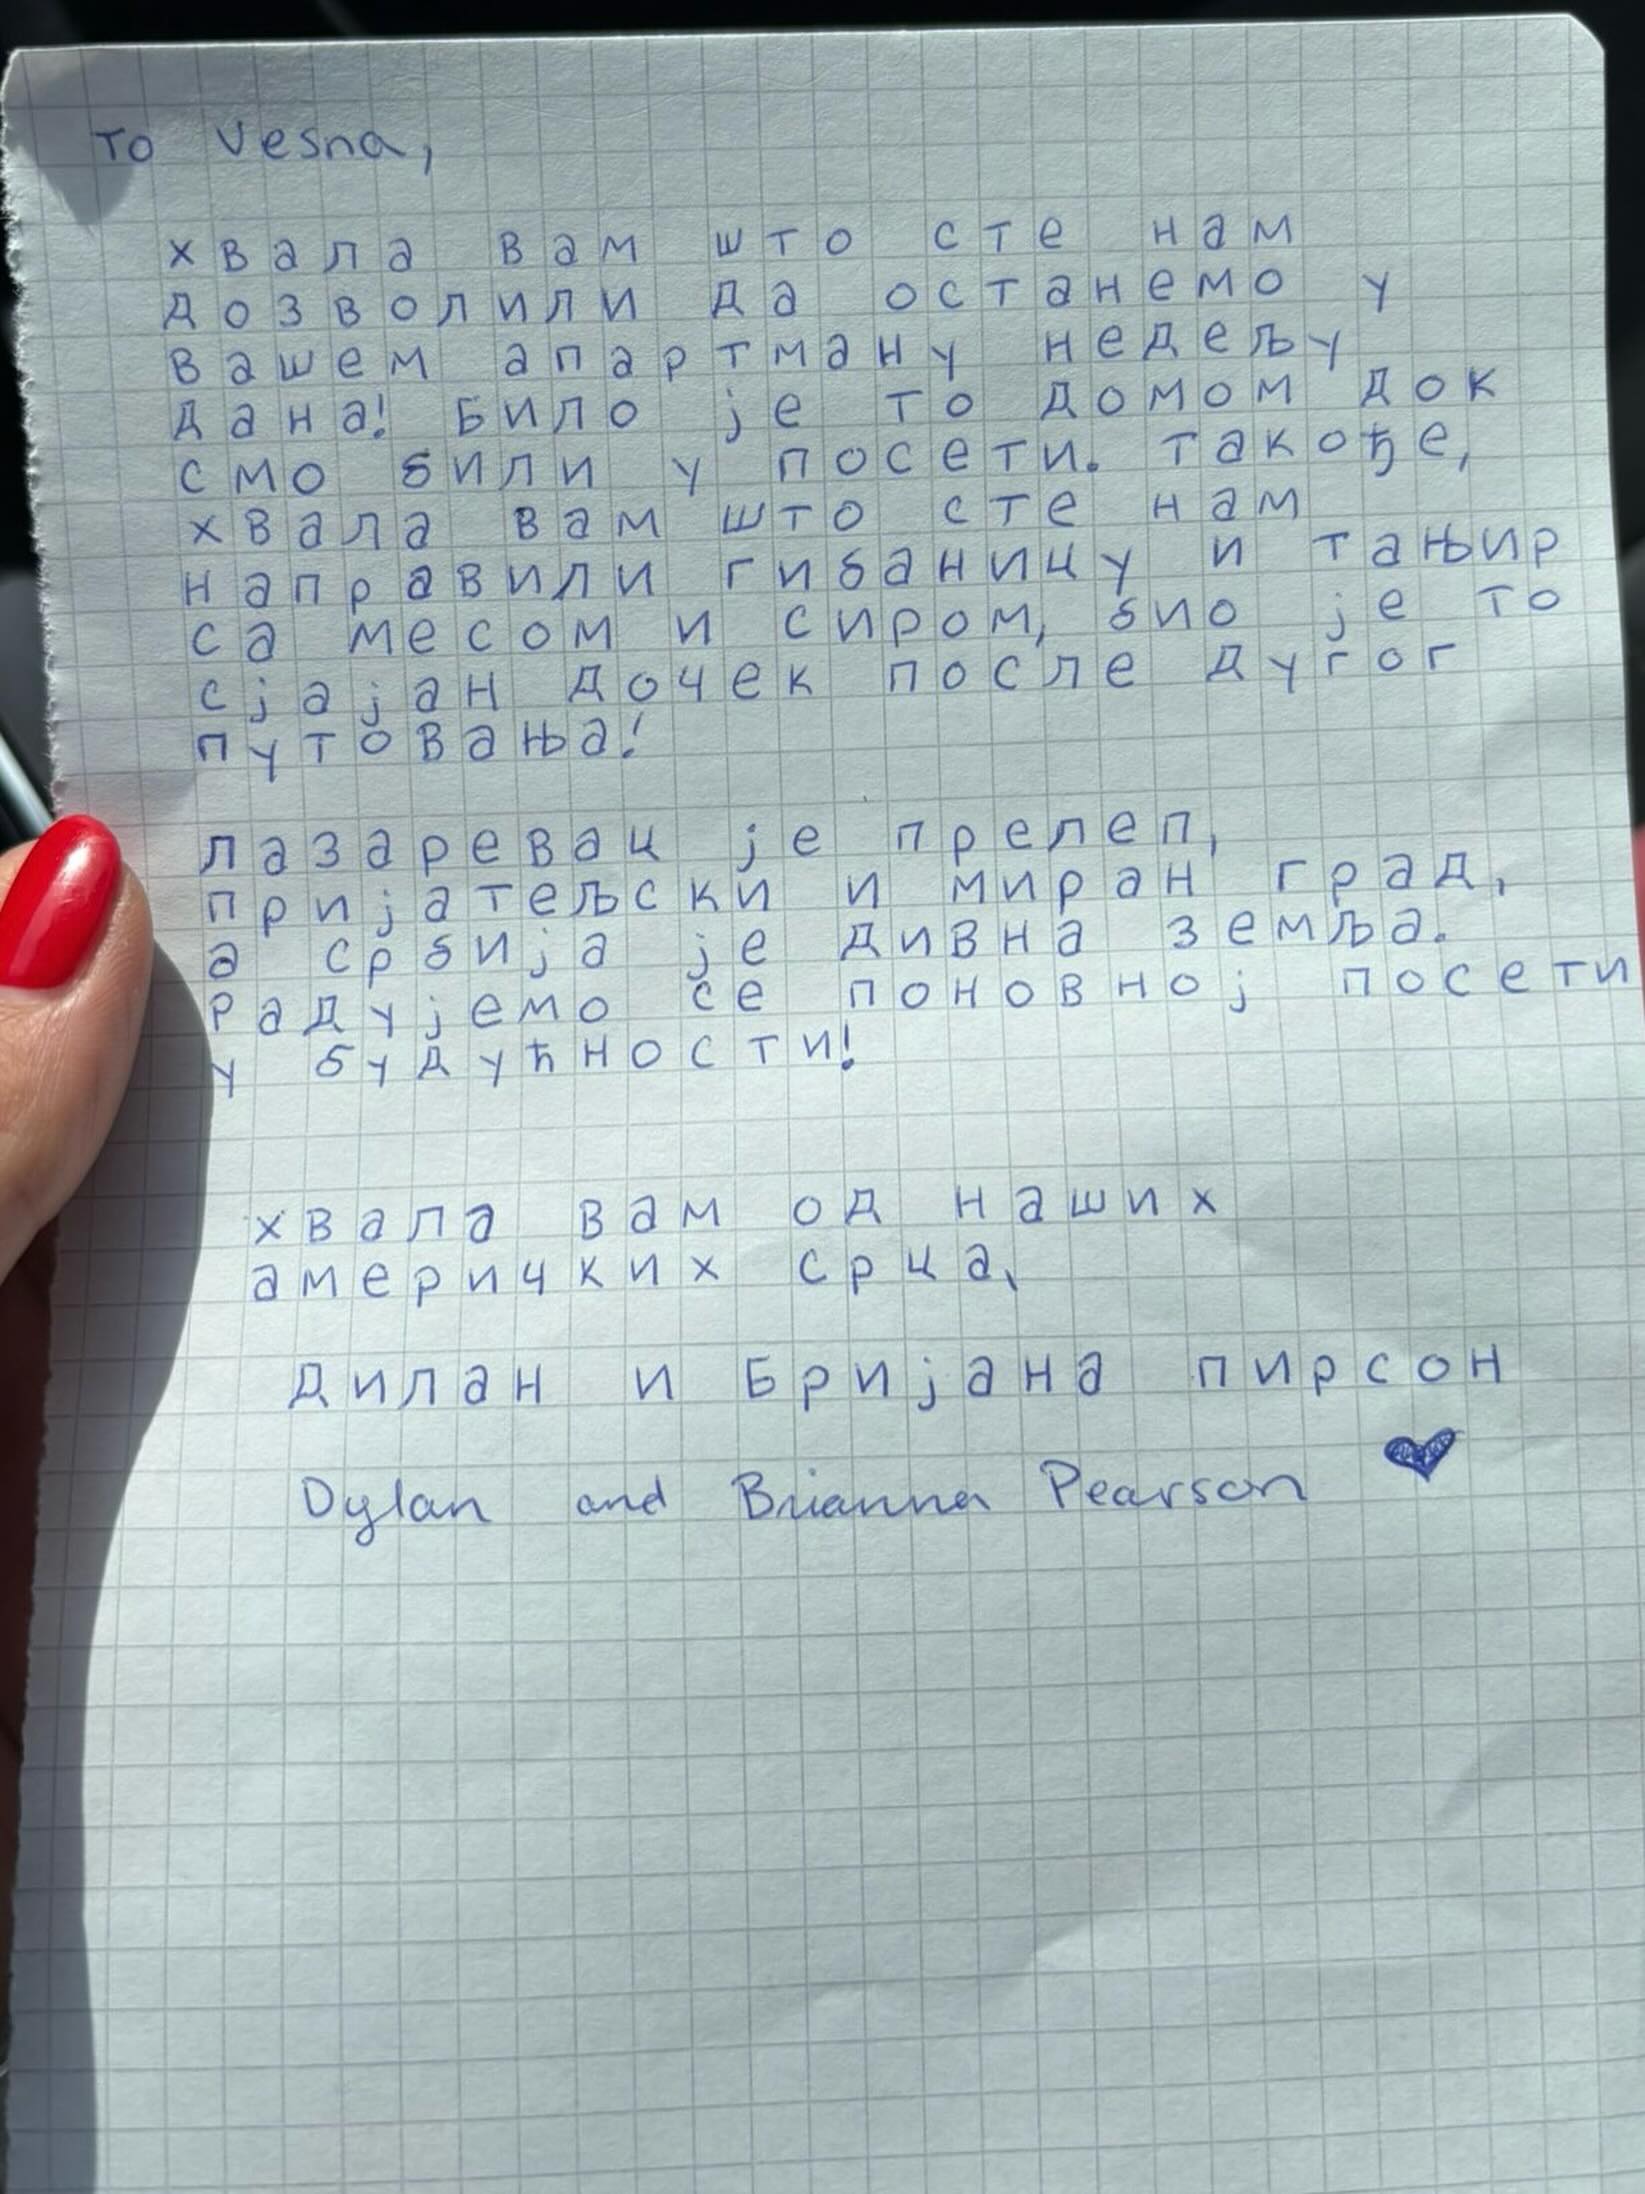 To Vesna,
хвала вам што сте нам
дозволили да останемо у
вашем апартману недељу
дана! Било је то домом док
смо били у посети. такође,
хвала вам што сте нам
направили гибаницу и тањир
са месом и сиром, био је то
сјајан дочек после дугог
путовања!
лазаревац је прелеп,
пријатељски и миран град,
а србија је дивна земља.
радујемо се поновној посети
у будућности!
хвала вам од наших
америчких срца,
дилан и Бријана пирсон
Dylan and Brianna Pearson